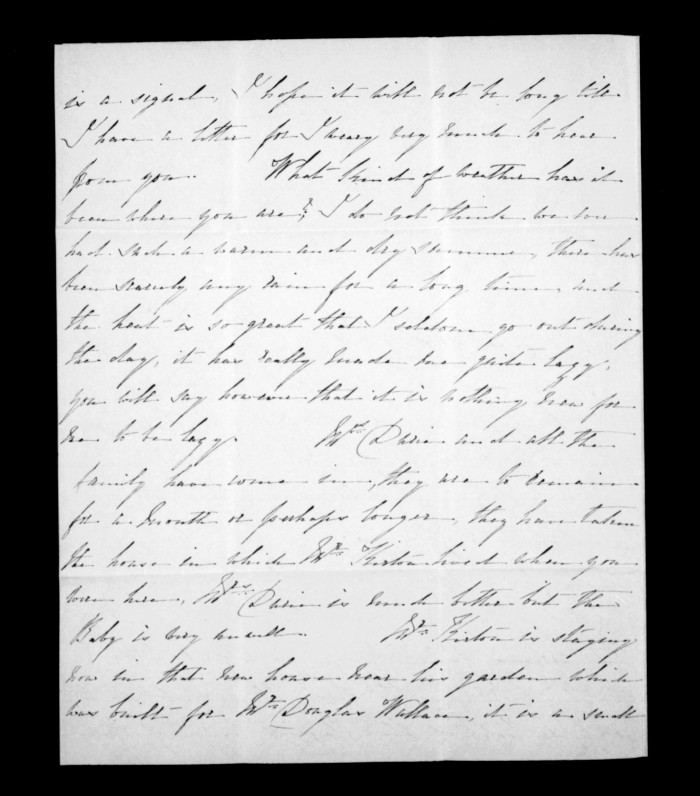 is a signal, I hope it will not be long till
I have a letter for I weary very much to hear
from you. What kind of weather has it
been where you are?, I do not think we ever
had such a warm and dry summer, there has
been scarcely any rain for a long time, and
the heat is so great that I seldom go out during
the day, it has really made me quite lazy,
you will say however that it is nothing new for
me to be lazy. Mrs and all the
family have come in, they are to remain
for a month or perhaps longer, they have taken
the house in which Mr Kirton lived when you
were here, Mrs is much better but the
Baby is very unwell. Mr Kirton is staying
now in that new house near his garden which
was built for Mr Douglas Wallace, it is a small